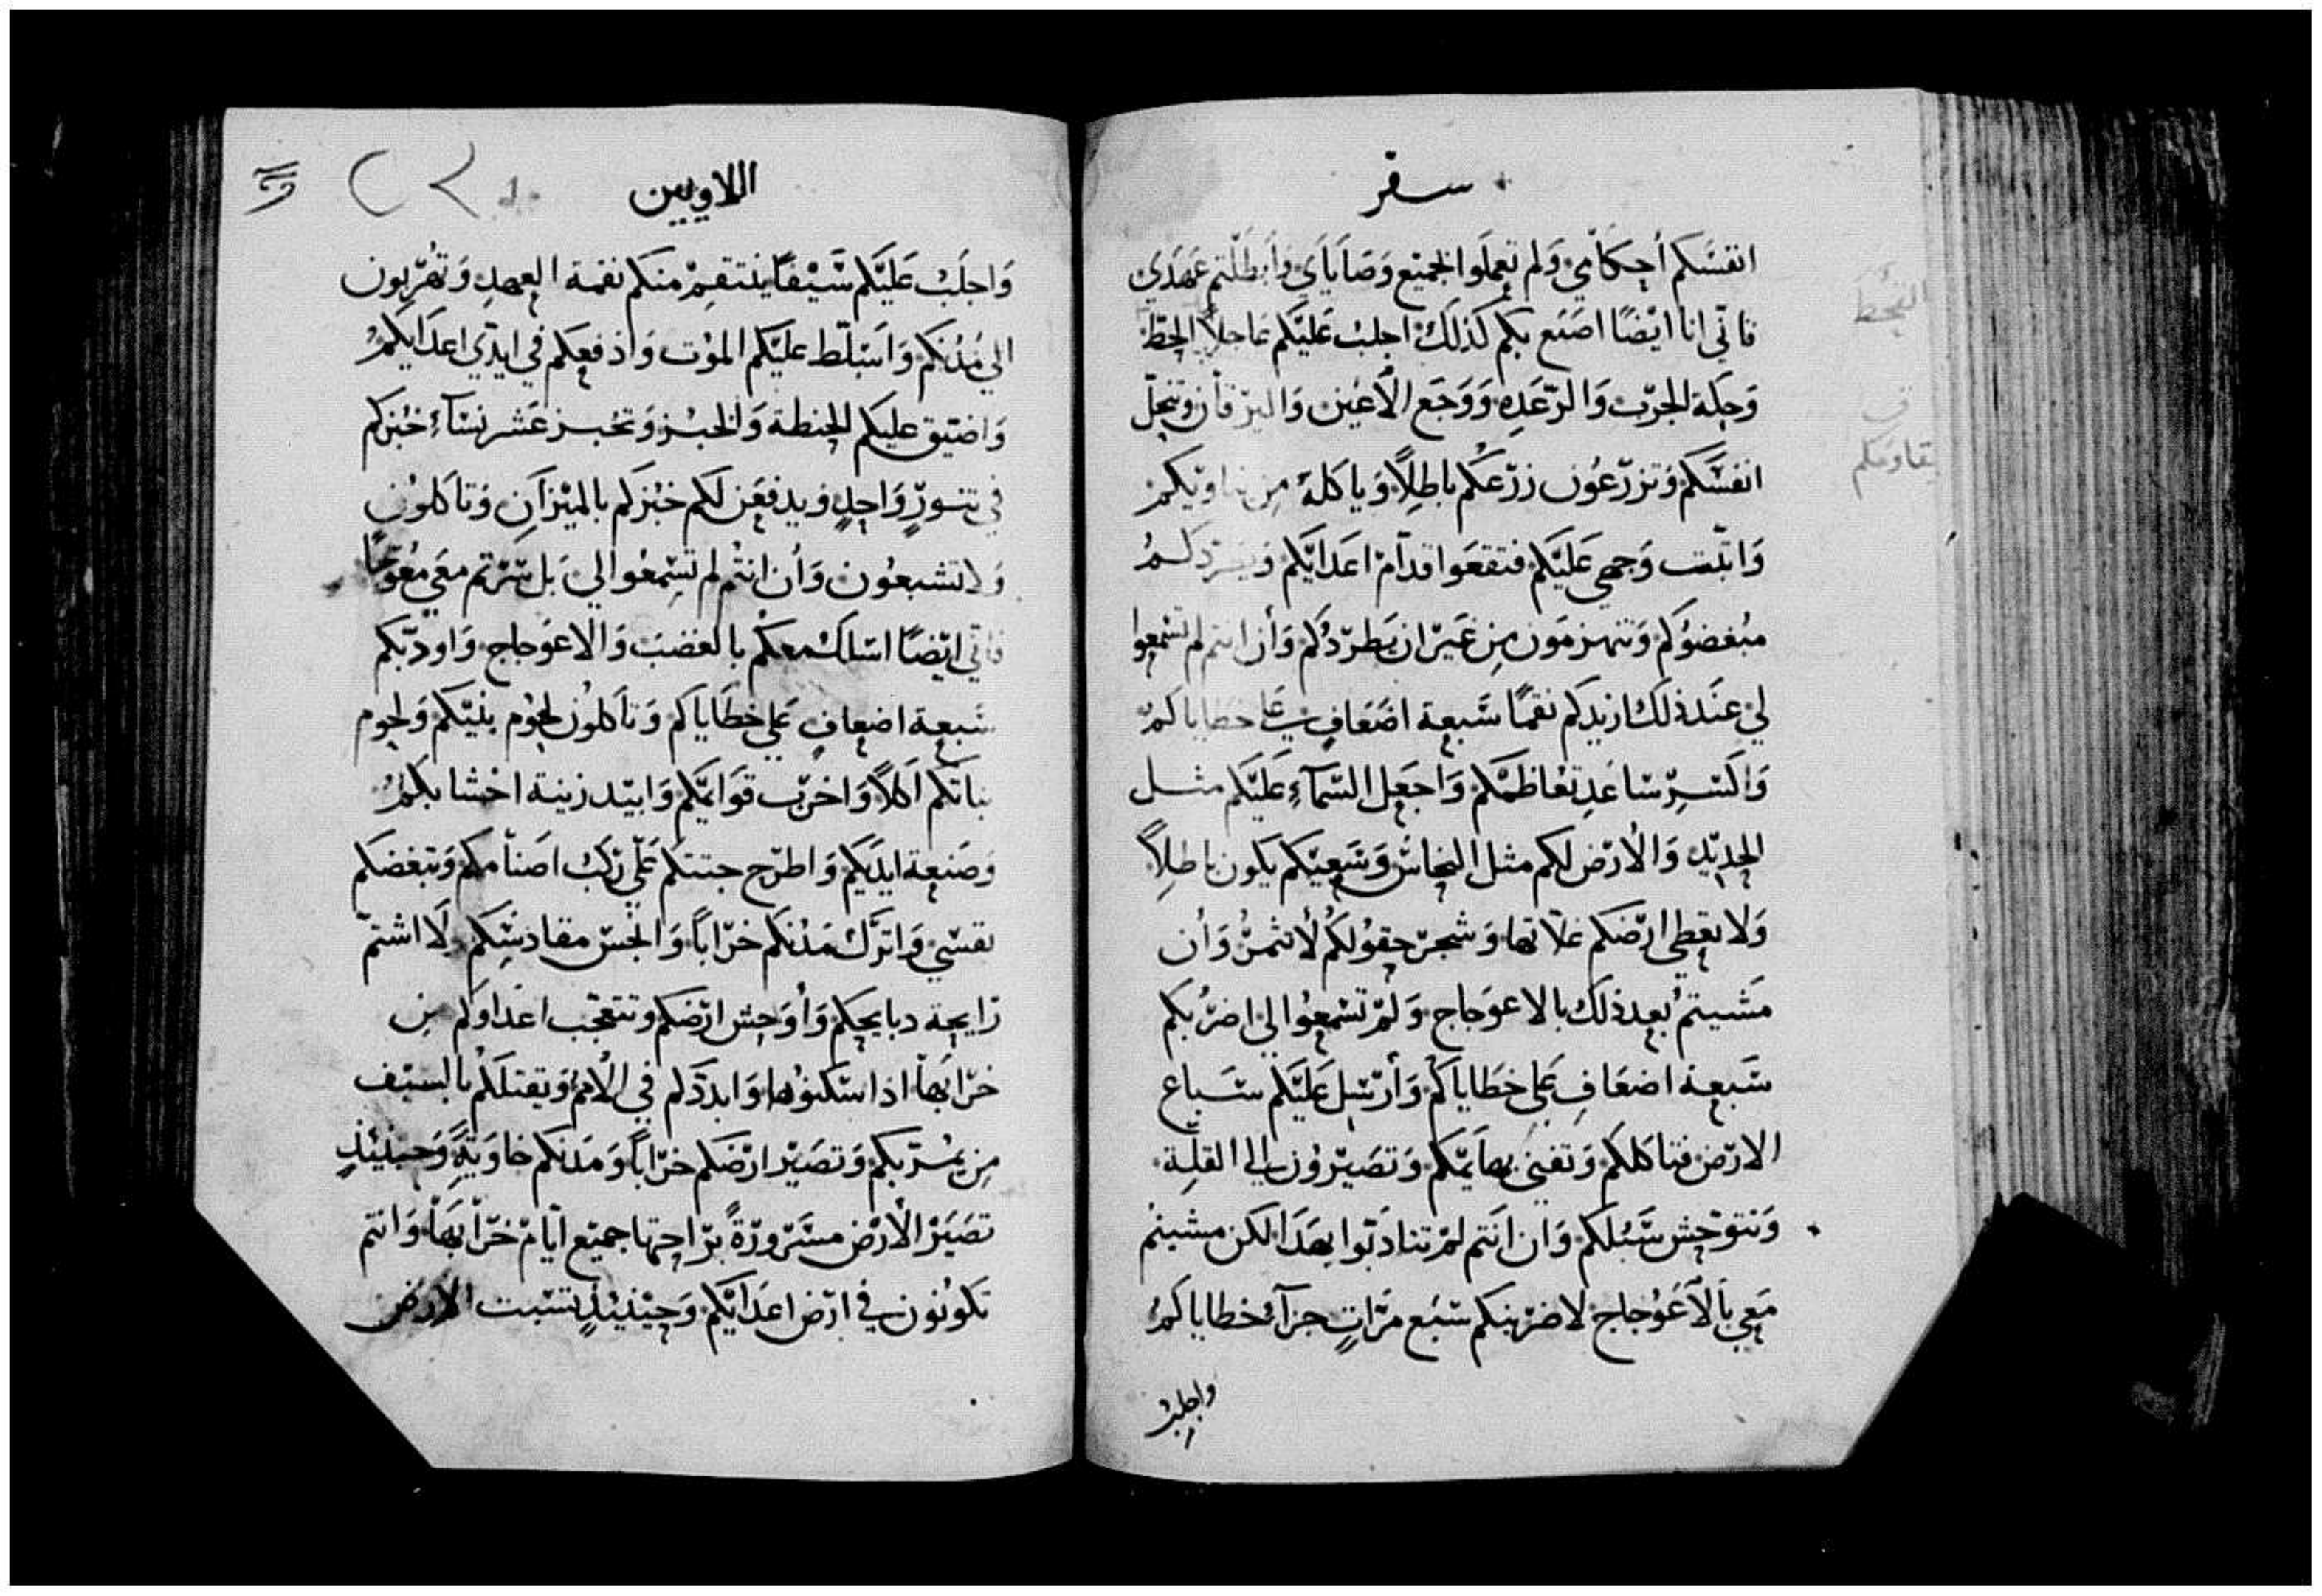 سفر
انفسكم أحكامي ولم تعملوا الجميع وصاياي وابطلتم عهدي
فاني انا ايضًا اصنع بكم كذلك اجلب عليكم عاجلاً
وحكة الجرب والرعده ووجع الأعين واليرقان وتنحل
انفسكم وتزرعون زرعكم باطلاً وياكله
واثبت وجهي عليكم فتقعوا قدام اعدايكم
مبغضوكم وتنهزمون من غير ان يطردكم وأن انتم لم تسمعوا
لي عند ذلك ازيدكم نقمًا سبعة اضعاف على خطاياكم
واكسر ساعد تعاظمكم واجعل السمآء عليكم مثل
الحديد والأرض لكم مثل النحاس وسعيكم يكون باطلاً
ولا تعطي ارضكم غلاتها وشجر حقولكم لا تثمر وأن
مشيتم بعد ذلك بالاعوجاج ولم تسمعوا لي اضربكم
سبعة اضعاف على خطاياكم وأرسل عليكم سباع
الارض فتاكلكم وتفني بهايمكم وتصيرون الى القلة
وتتوحش سبلكم وان انتم لم تتادبوا بهذا لكن مشيتم
معي بالأعوجاج لاضربنكم سبع مرات جزآء خطاياكم
واجلب
اللاويين
واجلب عليكم سيفًا ينتقم منكم نقمة العهد وتهربون
الي مدنكم واسلط عليكم الموت وادفعكم في ايدي اعدايكم
واضيق عليكم الحنطة والخبز وتخبز عشر نسآء خبزكم
في تنور واحد ويدفعن لكم خبزكم بالميزان وتاكلون
ولا تشبعون وأن انتم لم تسمعوا لي بل سرتم معي معوجًا
فاني ايضًا اسلك معكم بالغضب والاعوجاج واودبكم
سبعة اضعاف على خطاياكم وتاكلون لحوم بنيكم ولحوم
بناتكم اكلاً واخرب قوايمكم وابيد زينة اخشابكم
وصنعة ايديكم واطرح جتتكم على ركب اصنامكم وتبغضكم
نفسي واترك مدنكم خرابًا وانجس مقادسكم ولا اشتم
رايحة دبايحكم وأوحش ارضكم وتتعجب اعداوكم من
خرابها اذا سكنوها وابددكم في الأمم ويقتلكم بالسيف
من يسربكم وتصير ارضكم خرابًا ومدنكم خاوية وحينيذ
تصير الأرض مسرورة براحتها جميع ايام خرابها وانتم
تكونون في ارض اعدايكم وحينيذ تسبت الارض